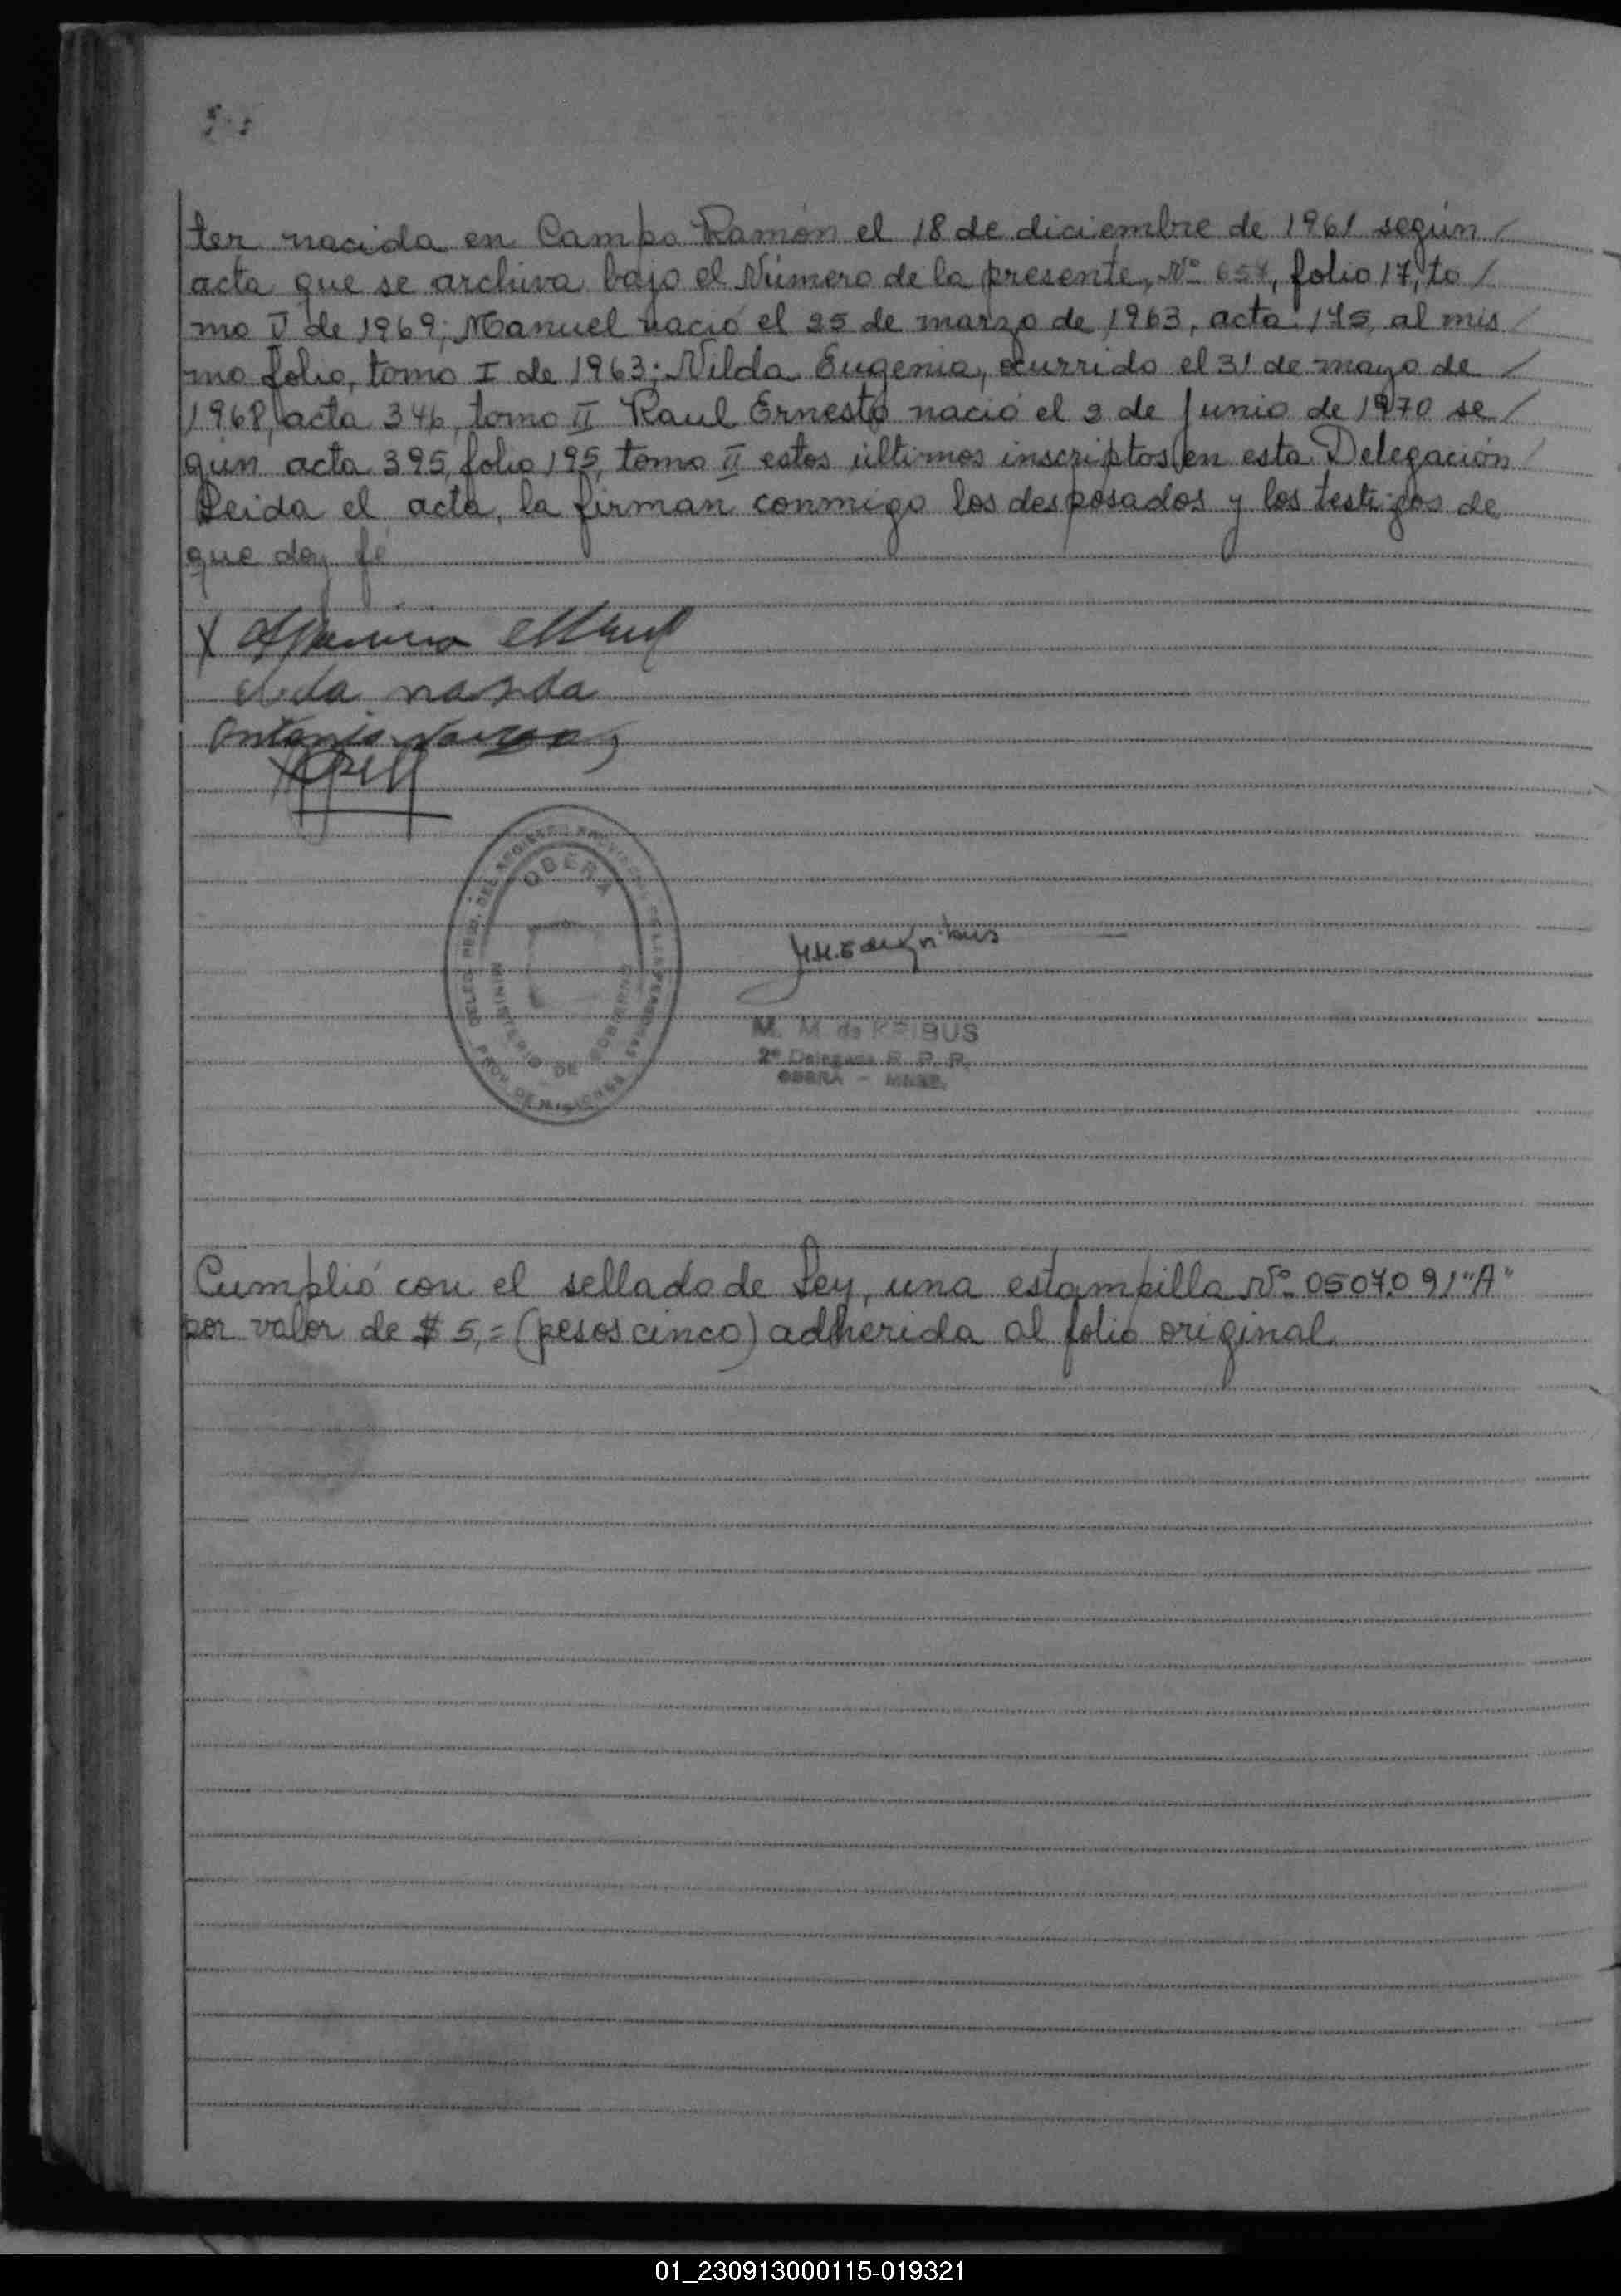 ter nacida en Campo Ramón el 18 de diciembre de 1961 según /
acta que se archiva bajo el Número de la presente, Nº 657, folio 17, to /
mo V de 1969; Manuel nació el 25 de marzo de 1963, acta 145, al mis /
mo folio, tomo I de 1963; Nilda Eugenia, ocurrido el 31 de mayo de /
1968, acta 346, tomo II Raul Ernesto nació el 2 de Junio de 1970 se /
gún acta 395, folio 195, tomo II estos últimos inscriptos en esta Delegación /
Leida el acta, la firman conmigo los desposados y los testigos de
que doy fé
X
Antonio
OBERA
MINISTERIO DE GOBIERNO
PROV. DE MISIONES
M. M. de KRIBUS
2º Delegada R. P. P.
OBERA - MNES.
Cumplió con el sellado de Ley, una estampilla Nº 0507091 "A"
por valor de $ 5,= (pesos cinco) adherida al folio original.
01_230913000115-019321